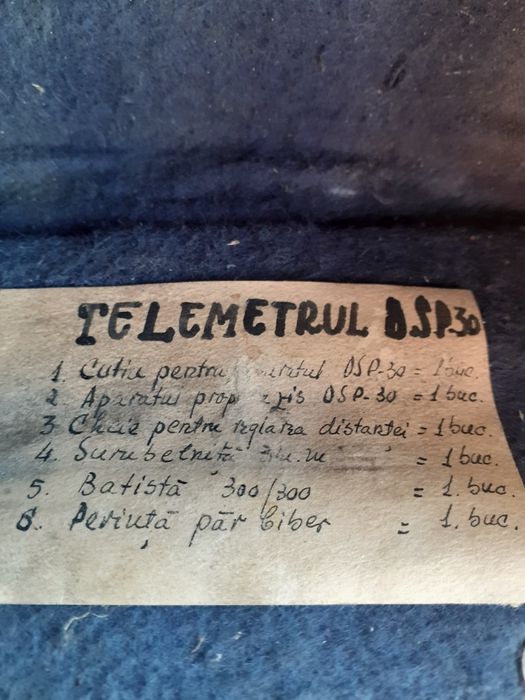 TELEMETRUL DSP.30
1. Cutie pentru DSP-30 = 1 buc.
2 Aparatul DSP-30 = 1 buc.
3 Cheie pentru reglarea distanței = 1 buc.
4. Șurubelniță = 1 buc.
5. Batistă 300/300 = 1. buc.
6. Periuță păr Ciber = 1. buc.